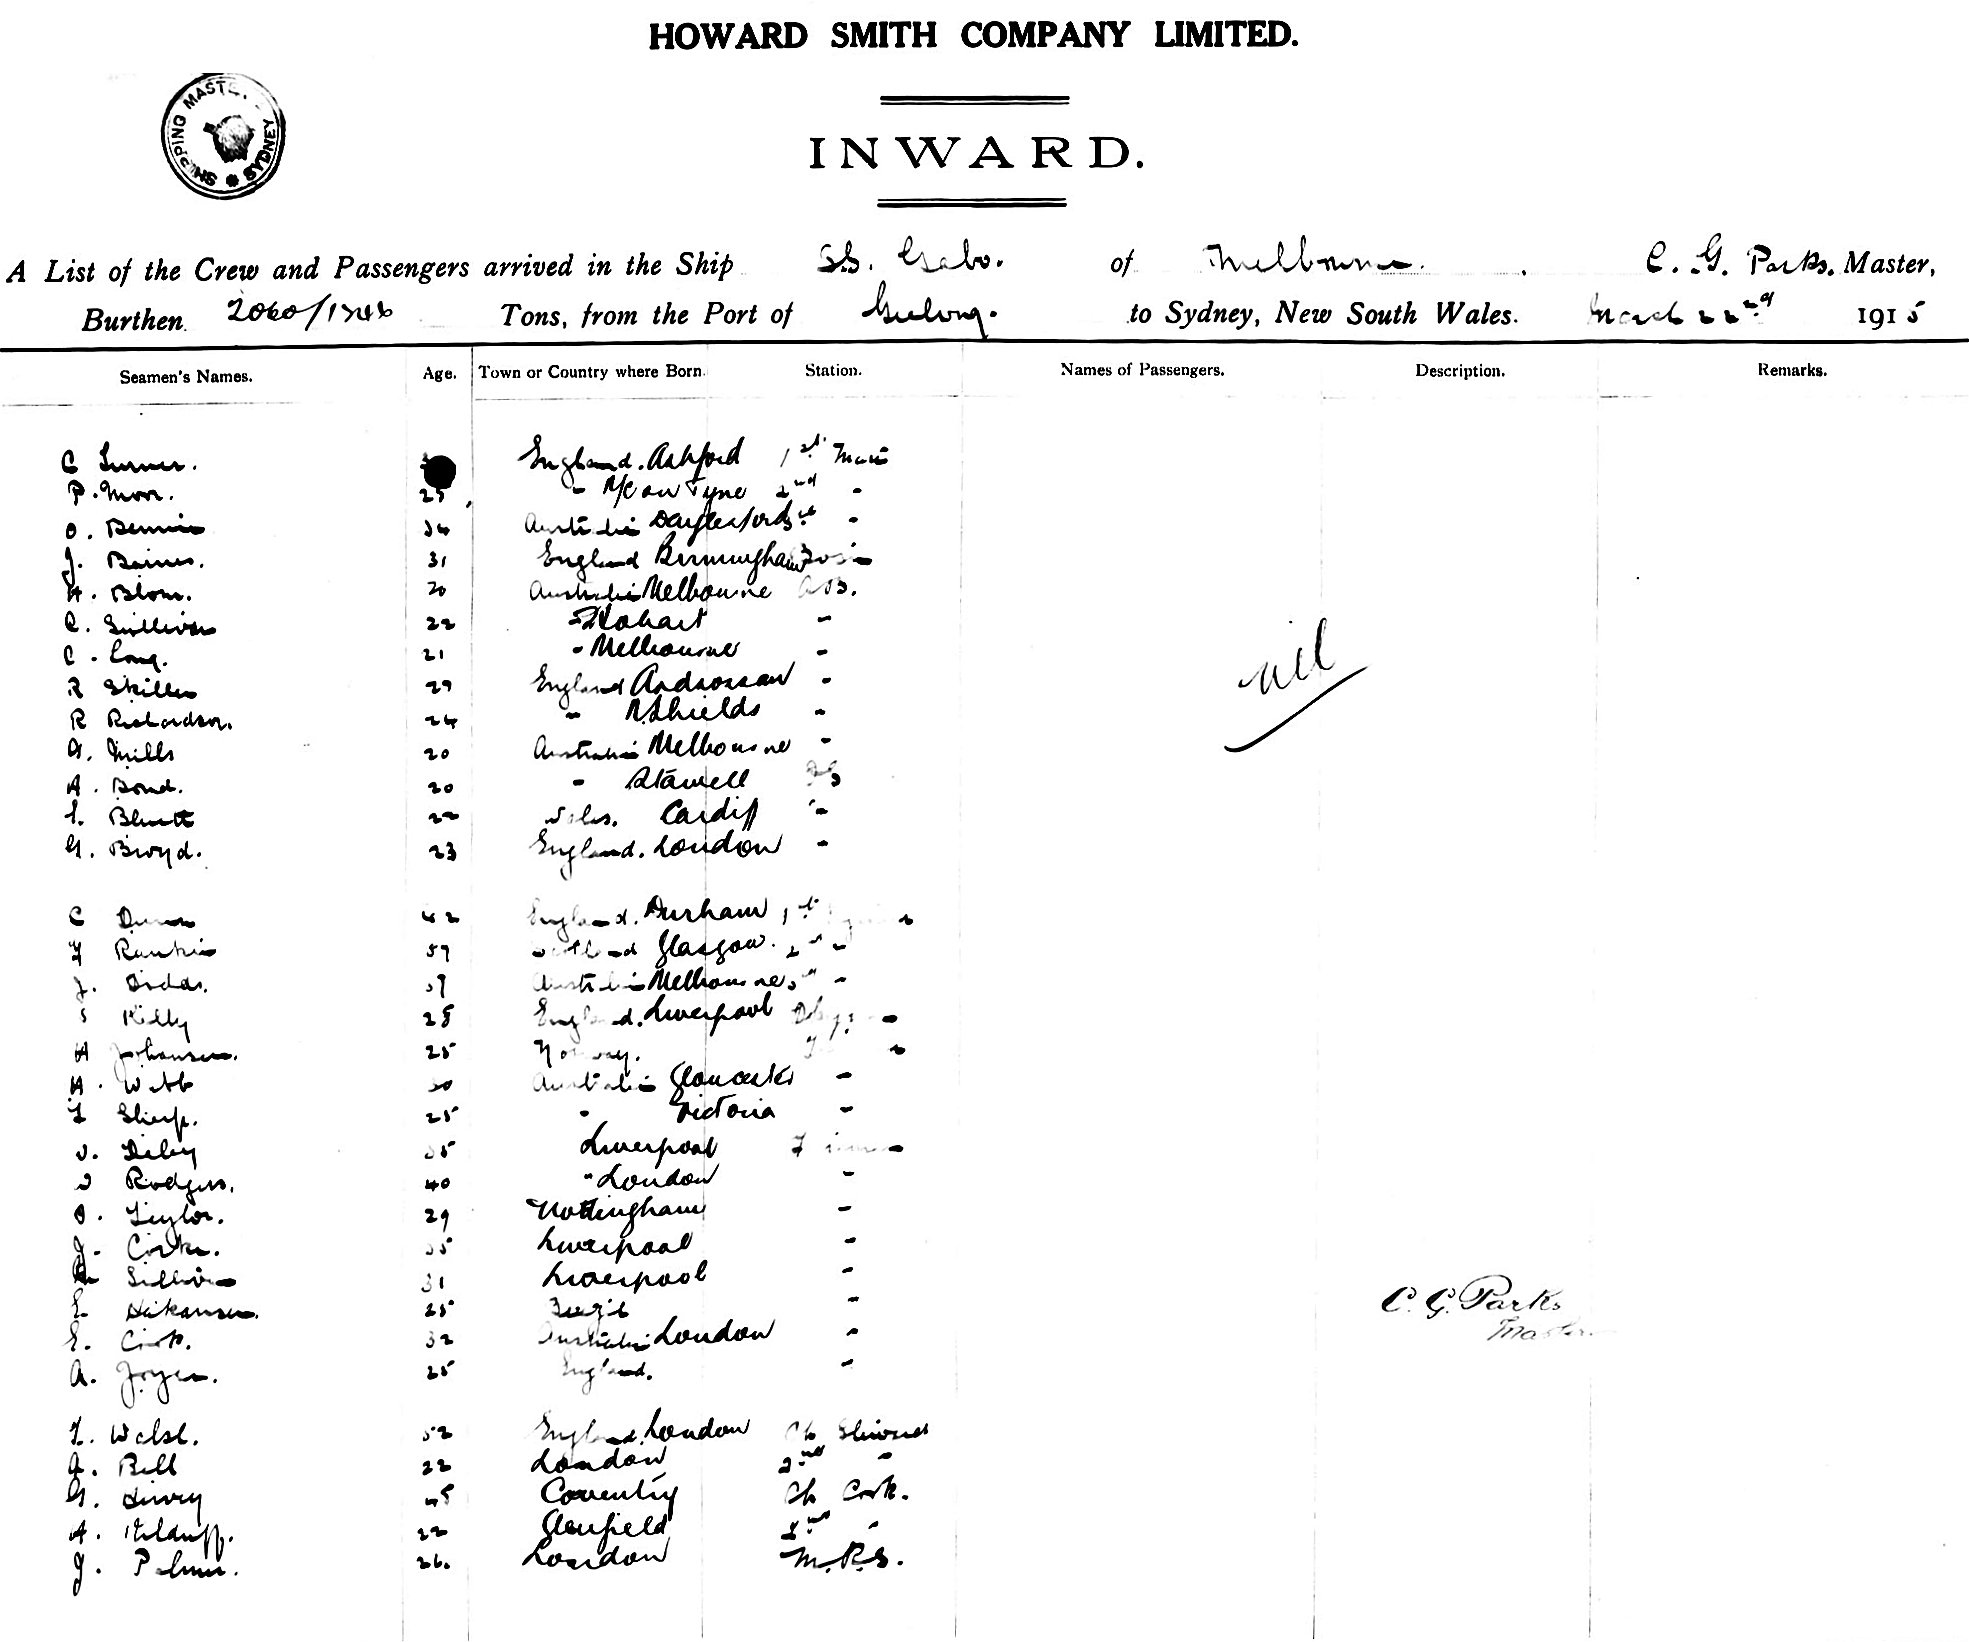 HOWARD SMITH COMPANY LIMITED.
SHIPPING MASTER SYDNEY
INWARD.
A List of the Crew and Passengers arrived in the Ship S.S. Gabo. of Melbourne. C. G. Parks. Master,
Burthen Tons, from the Port of Geelong. to Sydney, New South Wales. March 22nd 1915
Seamen's Names. Age. Town or Country where Born. Station. Names of Passengers. Description. Remarks.
C Turner. England. Ashford 1st Mate
P. Moor. 25 " N/C on Tyne 2nd "
O. Bennie 34 Australia Daylesford 3rd "
J. Baines. 31 England Birmingham Bosun
H. Blom. 20 Australia Melbourne A.B.
C. Sullivan 22 " Hobart "
C. Long. 21 " Melbourne "
R Skilling 29 England Ardrossan "
R Richardson. 24 " N. Shields "
A. Mills 20 Australia Melbourne "
A. Bond. 20 " Stawell OS
Bluett 22 Wales. Cardiff "
G. Bwyd. 23 England. London "
nil
C Dunn 42 England. Durham 1st Engineer
Rankin 59 Scotland Glasgow. 2nd "
J. Dodds. 39 Australia Melbourne 3rd "
Kelly 28 England. Liverpool
H Johansen. 25 Norway.
H. Webb 30 Australia Gloucester "
Sharp. 25 " Victoria "
35 Liverpool
Rodgers. 40 " London "
O. Taylor. 29 Nottingham "
J. Corke. 35 Liverpool "
Sullivan 31 Liverpool "
E. Hakansen. 25 "
E. Cook. 32 Australia London "
A. Joyce. 25 England. "
C. G. Parks
Master
Walsh. 52 England. London Ch Steward
A. Bell 22 London 2nd "
G. 45 Coventry Ch Cook.
A. Kilduff. 22 Glenfield 2nd "
J. Palmer. 26. London M.R.S.